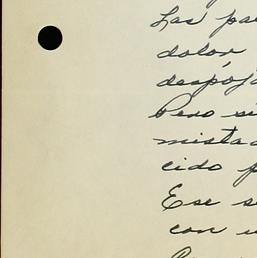 Las pa
dolor
despója
Pero si
mistad
cido p
Ese s
con u